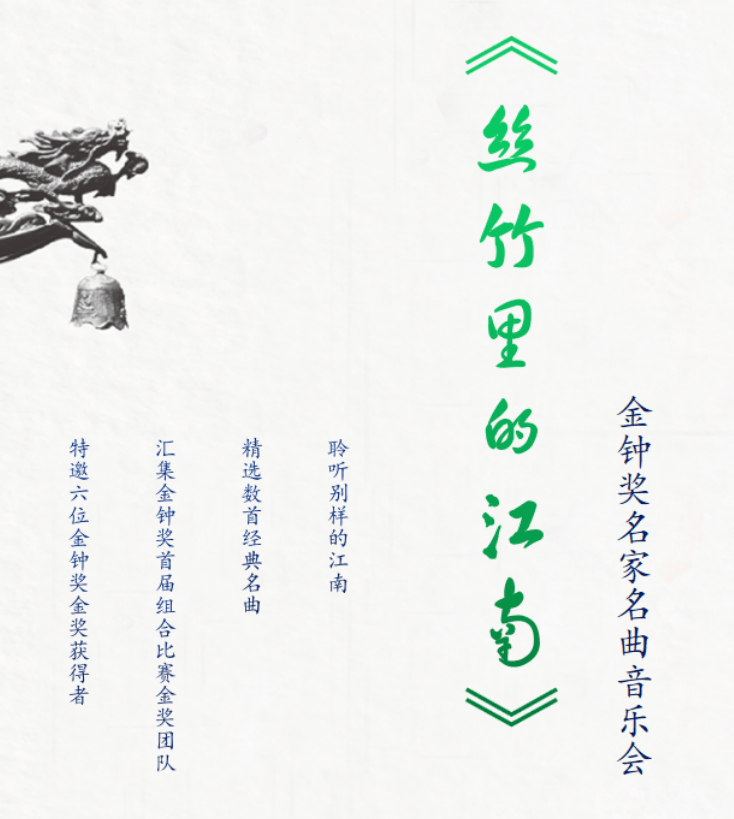 金钟奖名家名曲音乐会
《丝竹里的江南》
聆听别样的江南
精选数首经典名曲
汇集金钟奖首届组合比赛金奖团队
特邀六位金钟奖金奖获得者